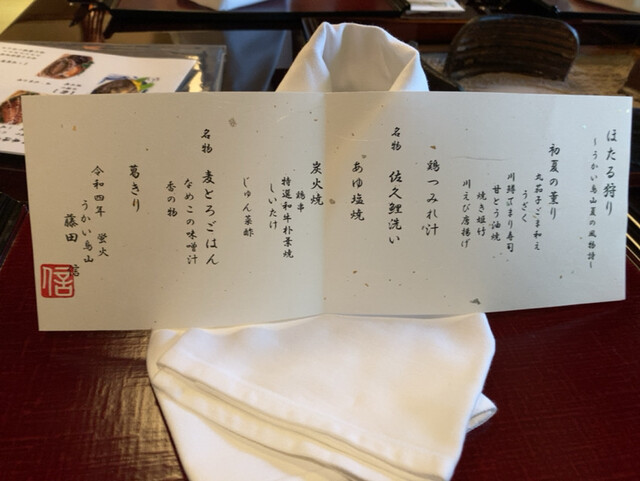 ほたる狩り
〜うかい鳥山夏の風物詩〜
初夏の薫り
丸茄子ごま和え
うざく
川鱒ちまり寿司
甘とう油焼
焼き姫竹
川えび唐揚げ
鶏つみれ汁
名物 佐久鯉洗い
あゆ塩焼
炭火焼
鶏串
しいたけ
特選和牛朴葉焼
じゅん菜酢
名物 麦とろごはん
なめこの味噌汁
香の物
葛きり
令和四年 蛍火
うかい鳥山
藤田 信
信